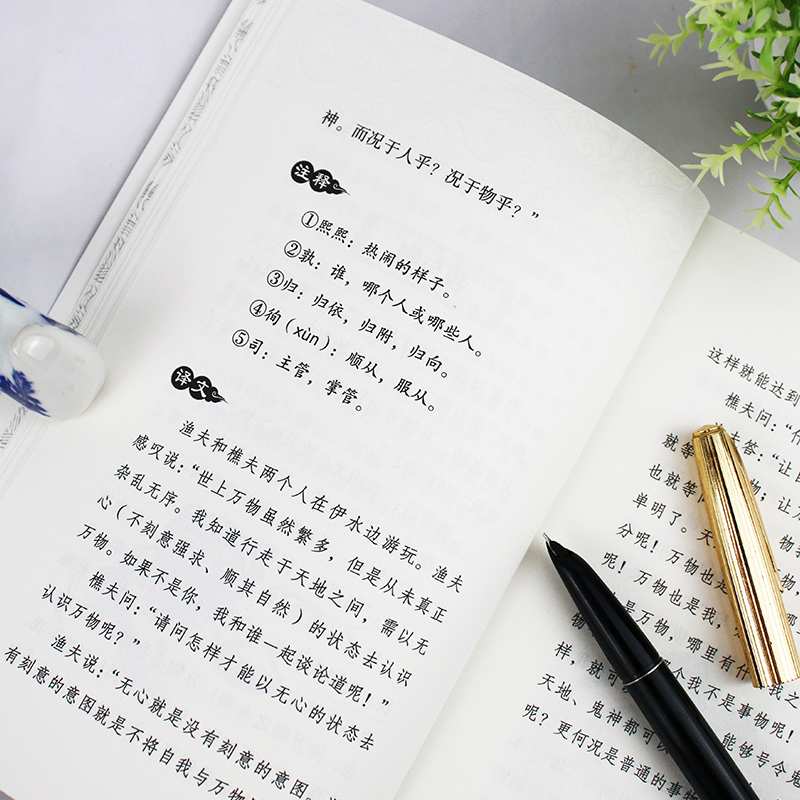 神。而况于人乎？况于物乎？”
注释
①熙熙：热闹的样子。
②孰：谁，哪个人或哪些人。
③归：归依，归附，归向。
④徇（xùn）：顺从，服从。
⑤司：主管，掌管。
译文
渔夫和樵夫两个人在伊水边游玩。渔夫
感叹说：“世上万物虽然繁多，但是从未真正
杂乱无序。我知道行走于天地之间，需以无
心（不刻意强求、顺其自然）的状态去认识
万物。如果不是你，我和谁一起谈论道呢！”
樵夫问：“请问怎样才能以无心的状态去
认识万物呢？”
渔夫说：“无心就是没有刻意的意图。
有刻意的意图就是不将自我与万物
这样就能达到
樵夫问：“
夫答：“让
就等 物；让
也就等同
单明了。天
分呢！万物也是
呢！万物也是我，
是万物，哪里有什 我之
样，就可 个我不是事物呢！
天地、鬼神都可以 能够号令鬼
呢？更何况是普通的事物